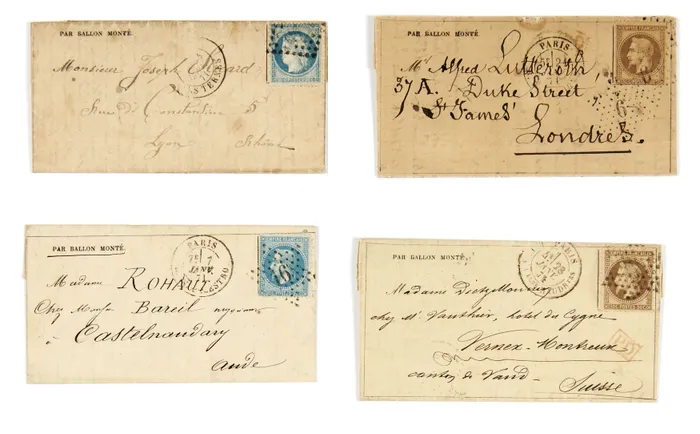 PAR BALLON MONTÉ.
Monsieur Joseph
Rue de Constantine 5
Lyon Rhône
PAR BALLON MONTÉ.
PARIS
Mr Alfred Lutteroth,
37A. Duke Street
St James'
Londres.
EMPIRE FRANÇAIS
PAR BALLON MONTÉ.
PARIS
7
JANV.
Madame ROHAUT
Chez Monsr Bareil
Castelnaudary
Aude
EMPIRE FRANÇAIS
16
PAR BALLON MONTÉ.
PARIS
Madame
chez Mr Vauthier, hotel du Cygne
Vernex-Montreux
canton de Vaud-
Suisse
EMPIRE FRANÇAIS
PD